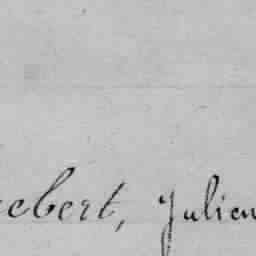 ebert, Julien